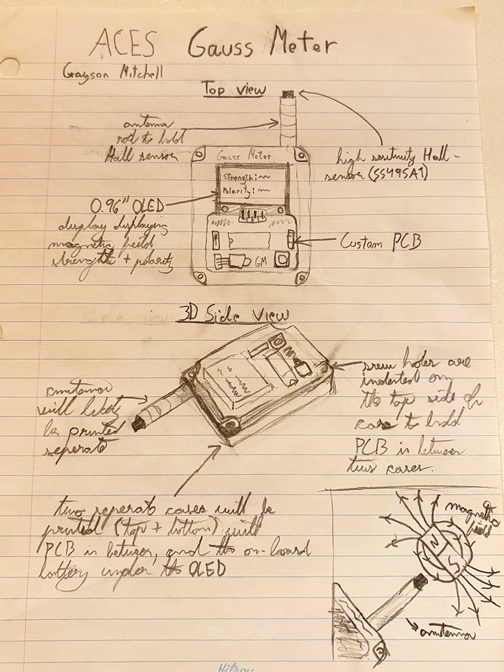 ACES Gauss Meter
Grayson Mitchell
Top view
antenna
rod to hold
Hall sensor
high sensitivity Hall-
sensor (SS495A1)
Gauss Meter
Strength:
Polarity:
0.96" OLED
display displaying
magnetic field
strength + polarity
Custom PCB
GM
3D Side view
antenna
will likely
be printed
seperate
screw holes are
indented on
the top side of
case to hold
PCB in between
two cases.
two seperate cases will be
printed (top + bottom) with
PCB in between, and the on-board
battery under the OLED
magnetic
field
N
S
antenna
Hilroy